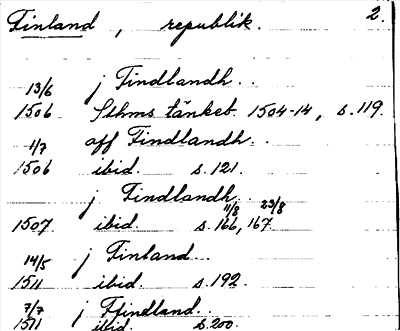 Finland, republik. 2.
13/6 j Findlandh..
1506 Sthms tänkeb. 1504-14, s. 119.
1/7 aff Findlandh.
1506 ibid. s. 121.
j Findlandh.
11/8 23/8
1507 ibid. s. 166, 167
14/5 j Finland
1511 ibid. s. 192.
7/7 j Ffindland.
1511 ibid. s. 200.